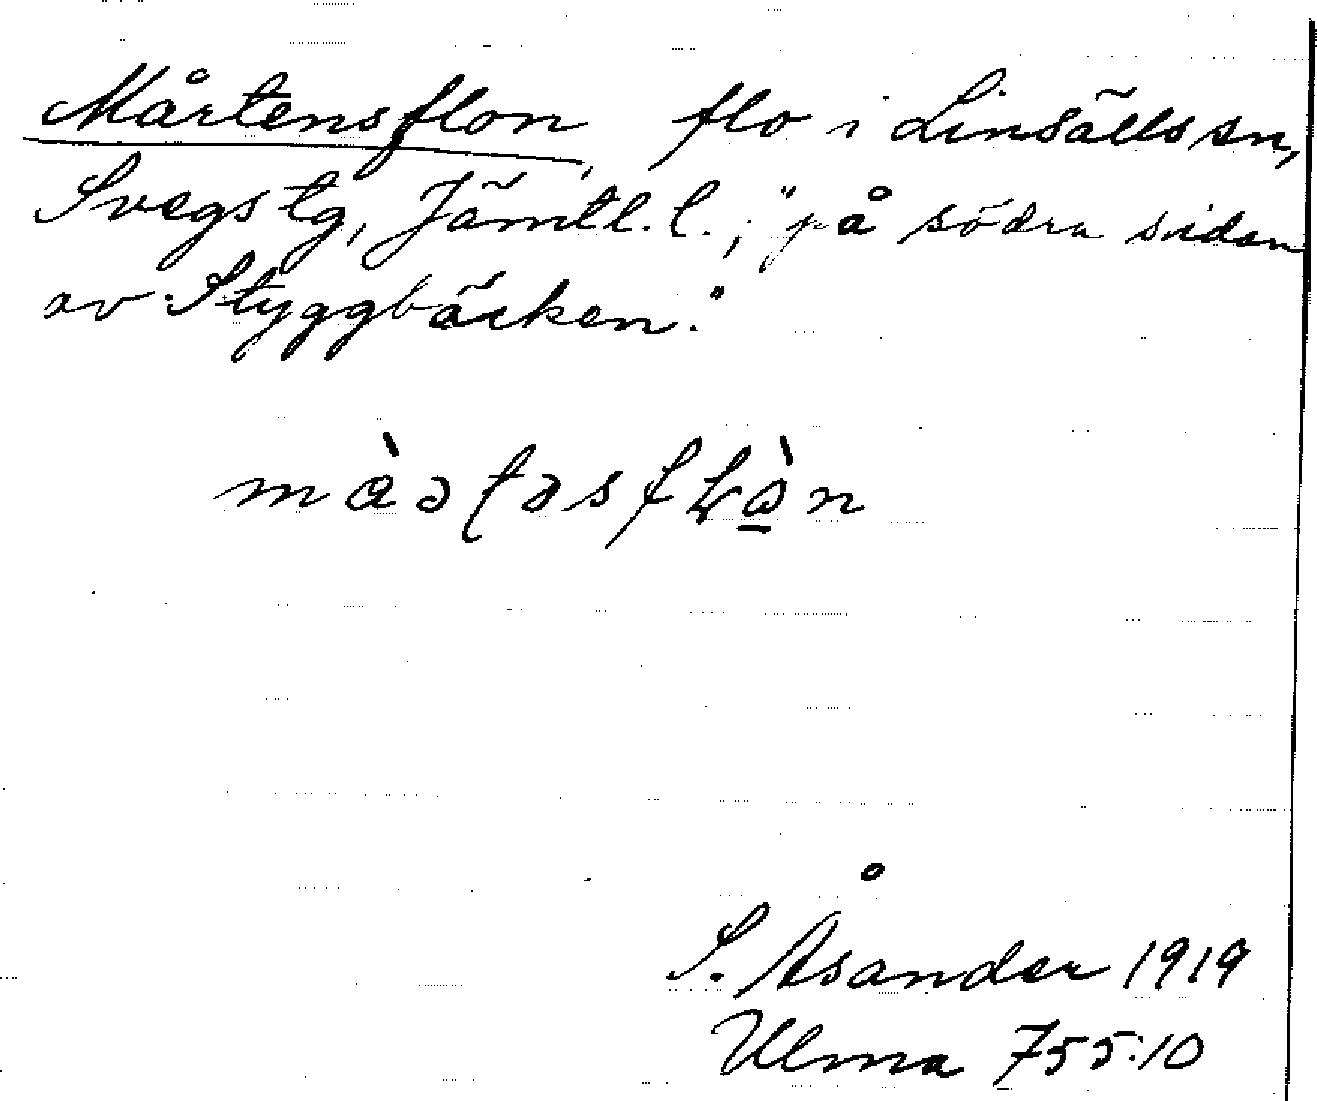 Mårtensflon, flo i Linsälls sn,
Svegs tg, Jämtl. l.; "på södra sidan
av Styggbäcken."
S. Åsander 1919
Ulma 755:10